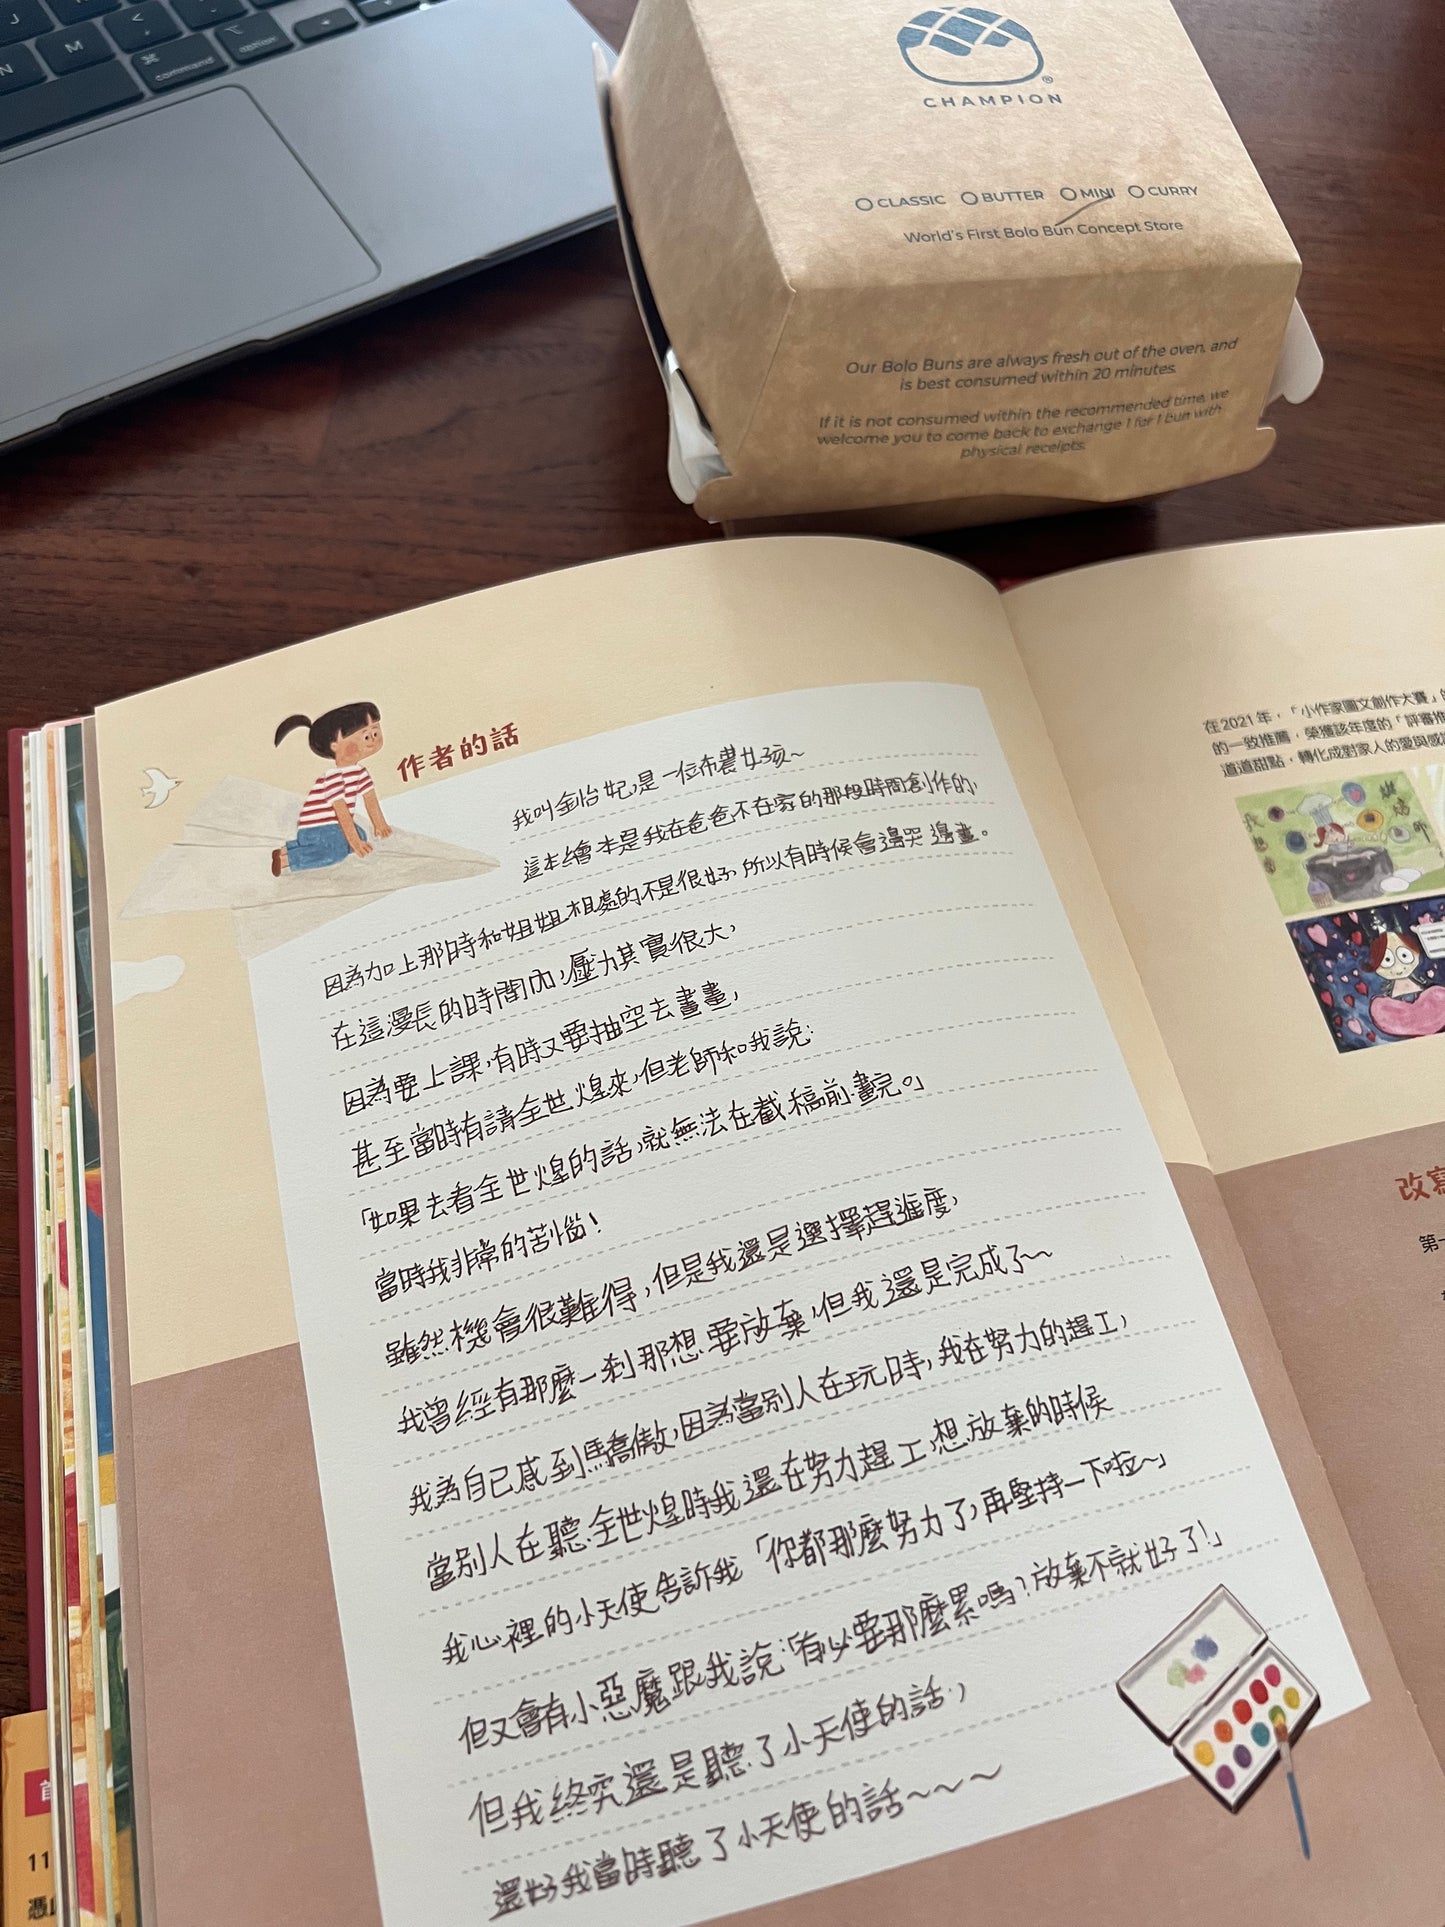 J
M
<
>
N
⌘
command
option
CHAMPION
CLASSIC BUTTER MINI CURRY
World's First Bolo Bun Concept Store
Our Bolo Buns are always fresh out of the oven, and
is best consumed within 20 minutes.
If it is not consumed within the recommended time, we
welcome you to come back to exchange 1 for 1 bun with
physical receipts.
作者的話
我叫金怡妃,是一位布農女孩~
這本繪本是我在爸爸不在家的那段時間創作的,
因為加上那時和姐姐相處的不是很好,所以有時候會邊哭邊畫。
在這漫長的時間內,壓力其實很大,
因為要上課,有時又要抽空去畫畫,
甚至當時有請全世煌來,但老師和我說:
「如果去看全世煌的話,就無法在截稿前畫完。」
當時我非常的苦惱!
雖然機會很難得,但是我還是選擇趕進度,
我曾經有那麼一剎那想要放棄,但我還是完成了~
我為自己感到驕傲,因為當別人在玩時,我在努力的趕工,
當別人在聽全世煌時我還在努力趕工,想放棄的時候
我心裡的小天使告訴我「你都那麼努力了,再堅持一下啦~」
但又會有小惡魔跟我說:「有必要那麼累嗎?放棄不就好了!」
但我終究還是聽了小天使的話,
還好我當時聽了小天使的話~~~
在2021年,「小作家圖文創作大賽」
的一致推薦,榮獲該年度的「評審推
道道甜點,轉化成對家人的愛與感
改寫
第一
11